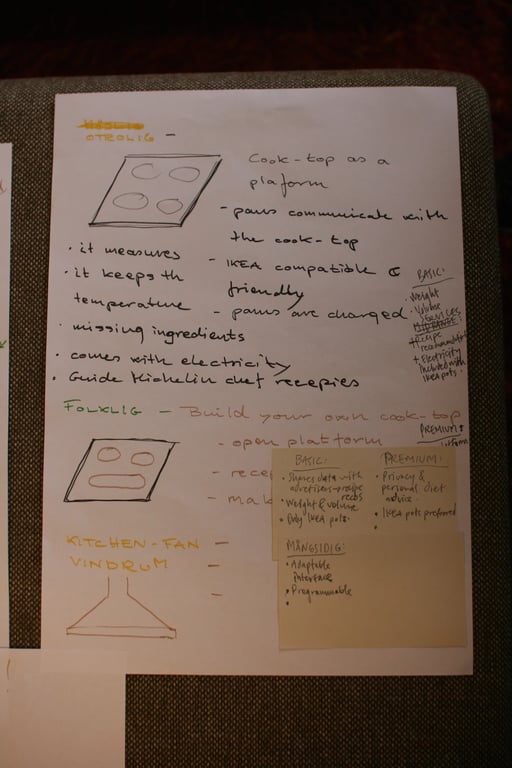 OTROLIG -
Cook-top as a
platform
- pans communicate with
the cook-top
- IKEA compatible &
friendly
- pans are charged
• it measures
• it keeps th
temperature
• missing ingredients
• comes with electricity
• Guide Michelin chef recepies
BASIC:
• Weight
• Volume
SERVICES
+ Recipe
recommendation
+ Electricity
included with
IKEA pots.
FOLKLIG - Build your own cook-top
- open platform
- rece
- mak
PREMIUM:
BASIC:
• Shares data with
advertisers-recipe
recos
• Weight & volume
• Only IKEA pots.
PREMIUM:
• Privacy &
personal diet
advice.
• IKEA pots preferred
•
MÅNGSIDIG:
• Adaptable
interface
• Programmable
•
KITCHEN-FAN -
VINDRUM -
-